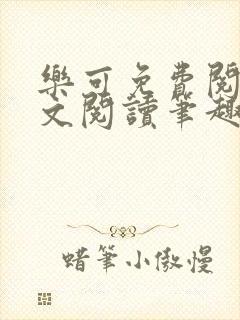 樂可免費閱
文閱讀筆趣
蜡筆小傲慢